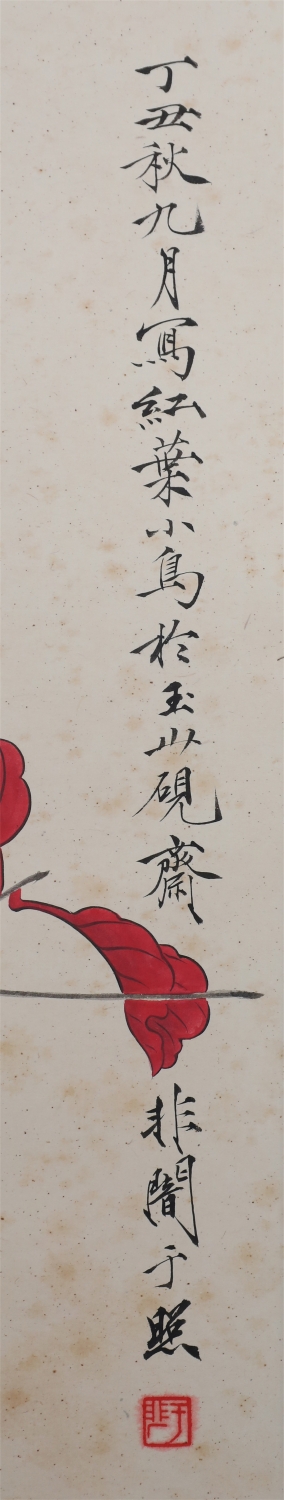 丁丑秋九月寫紅葉小鳥於玉山硯齋
非闇于照